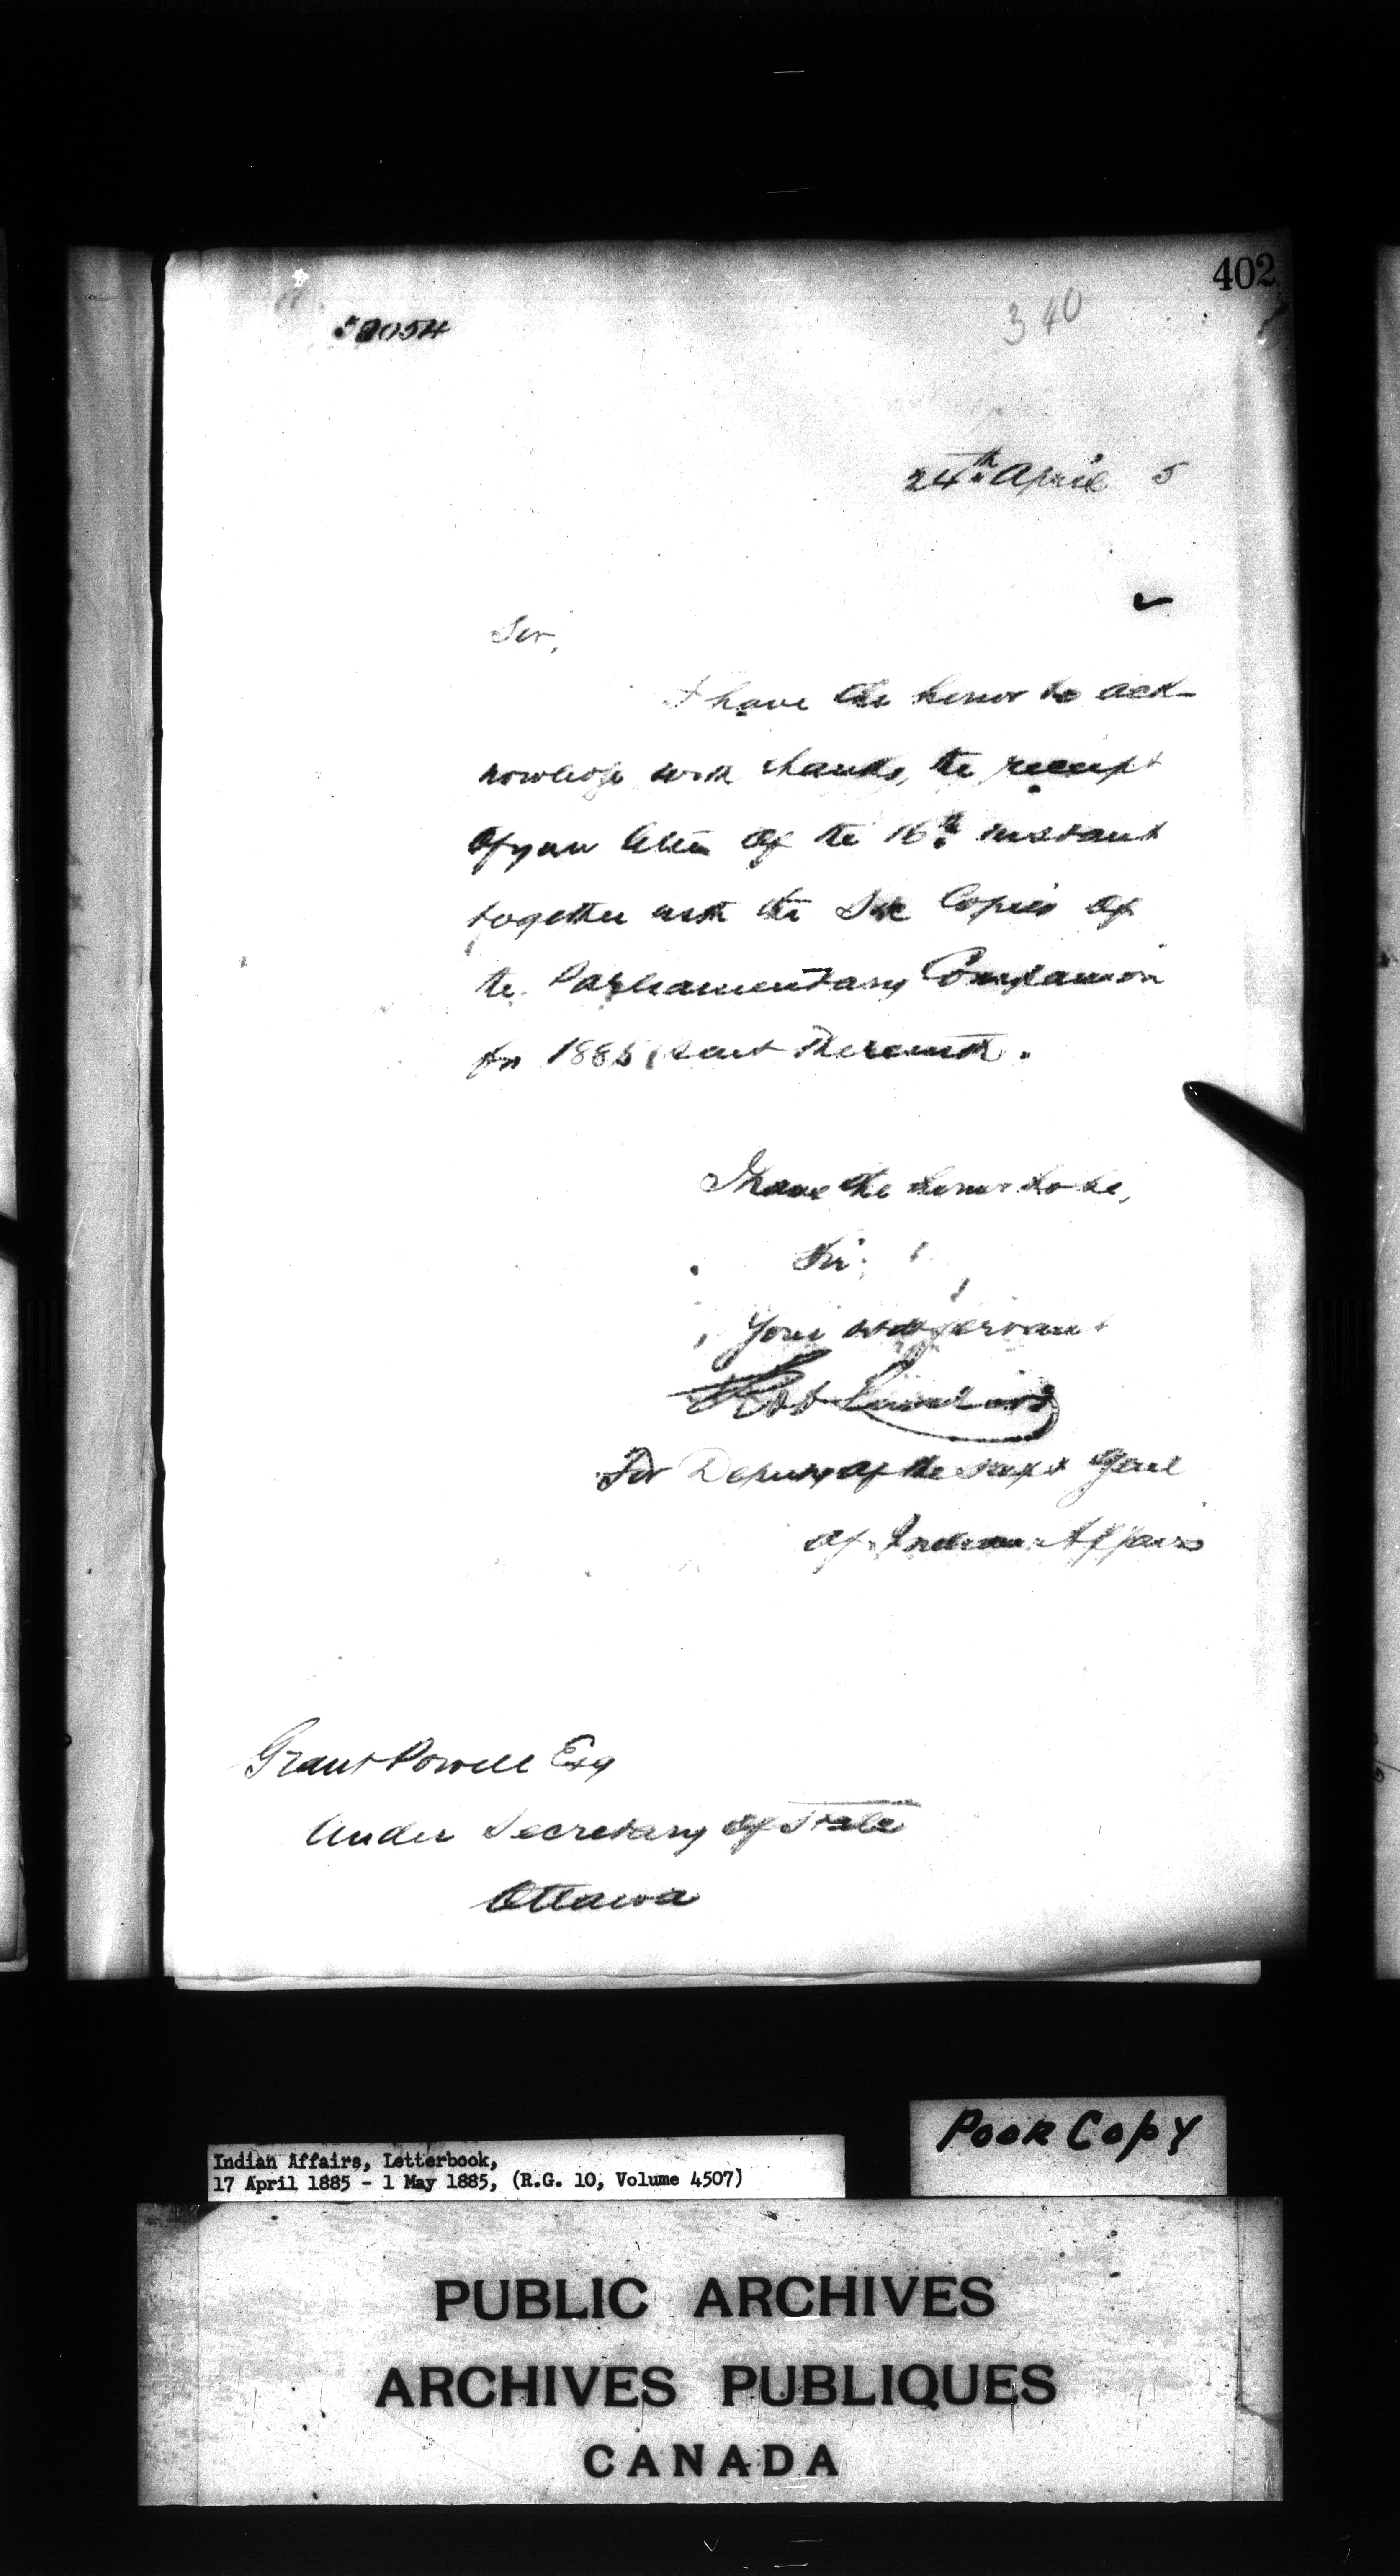 402
340
24th April 5
Sir,
I have the honor to ack-
nowledge with thanks, the receipt
of your letter of the 16th instant
together with the Six Copies of
the Parliamentary Companion
for 1885, sent therewith.
I have the honor to be,
Sir,
Your obdt servant
For Deputy of the Supt Genl
of Indian Affairs
Grant Powell Esq
Under Secretary of State
Ottawa
Poor Copy
Indian Affairs, Letterbook,
17 April 1885 - 1 May 1885, (R.G. 10, Volume 4507)
PUBLIC ARCHIVES
ARCHIVES PUBLIQUES
CANADA